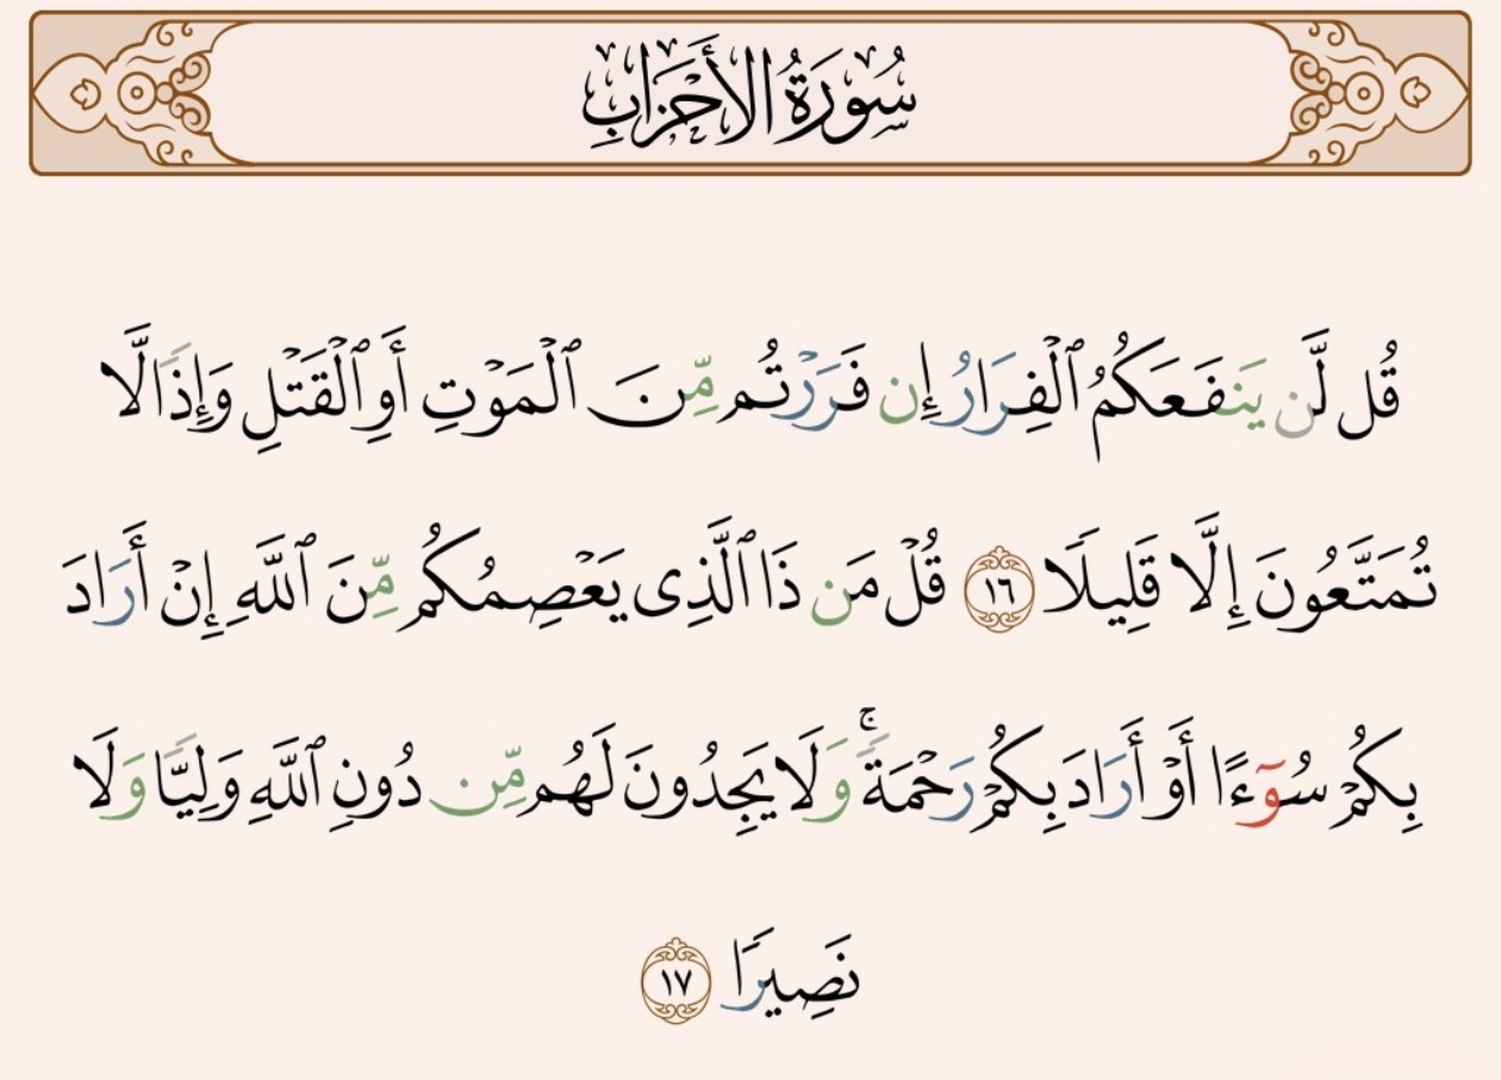 سُورَةُ الأَحْزَابِ
قُل لَّن يَنفَعَكُمُ ٱلْفِرَارُ إِن فَرَرْتُم مِّنَ ٱلْمَوْتِ أَوِ ٱلْقَتْلِ وَإِذًا لَّا
تُمَتَّعُونَ إِلَّا قَلِيلًا ١٦ قُلْ مَن ذَا ٱلَّذِى يَعْصِمُكُم مِّنَ ٱللَّهِ إِنْ أَرَادَ
بِكُمْ سُوٓءًا أَوْ أَرَادَ بِكُمْ رَحْمَةً ۚ وَلَا يَجِدُونَ لَهُم مِّن دُونِ ٱللَّهِ وَلِيًّا وَلَا
نَصِيرًا ١٧